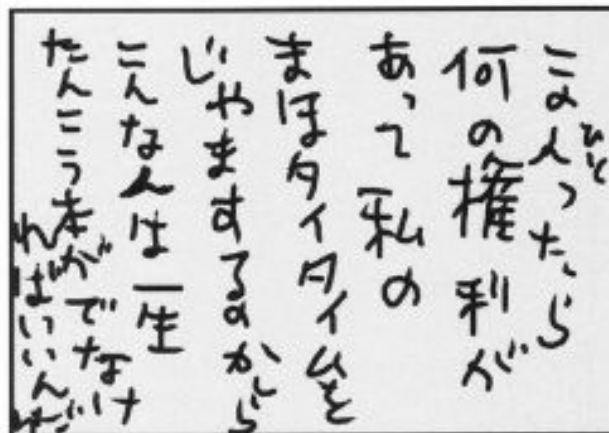 この人ったら
ひと
何の権利が
あって私の
まほタイタイムを
じゃまするのかしら
こんな人は一生
たんこう本がでなけ
ればいいんだ